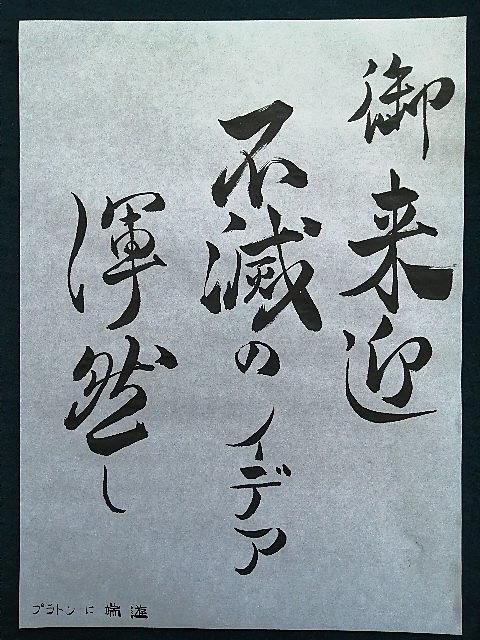 御来迎
不滅のイデア
渾然し
プラトンに 端遊